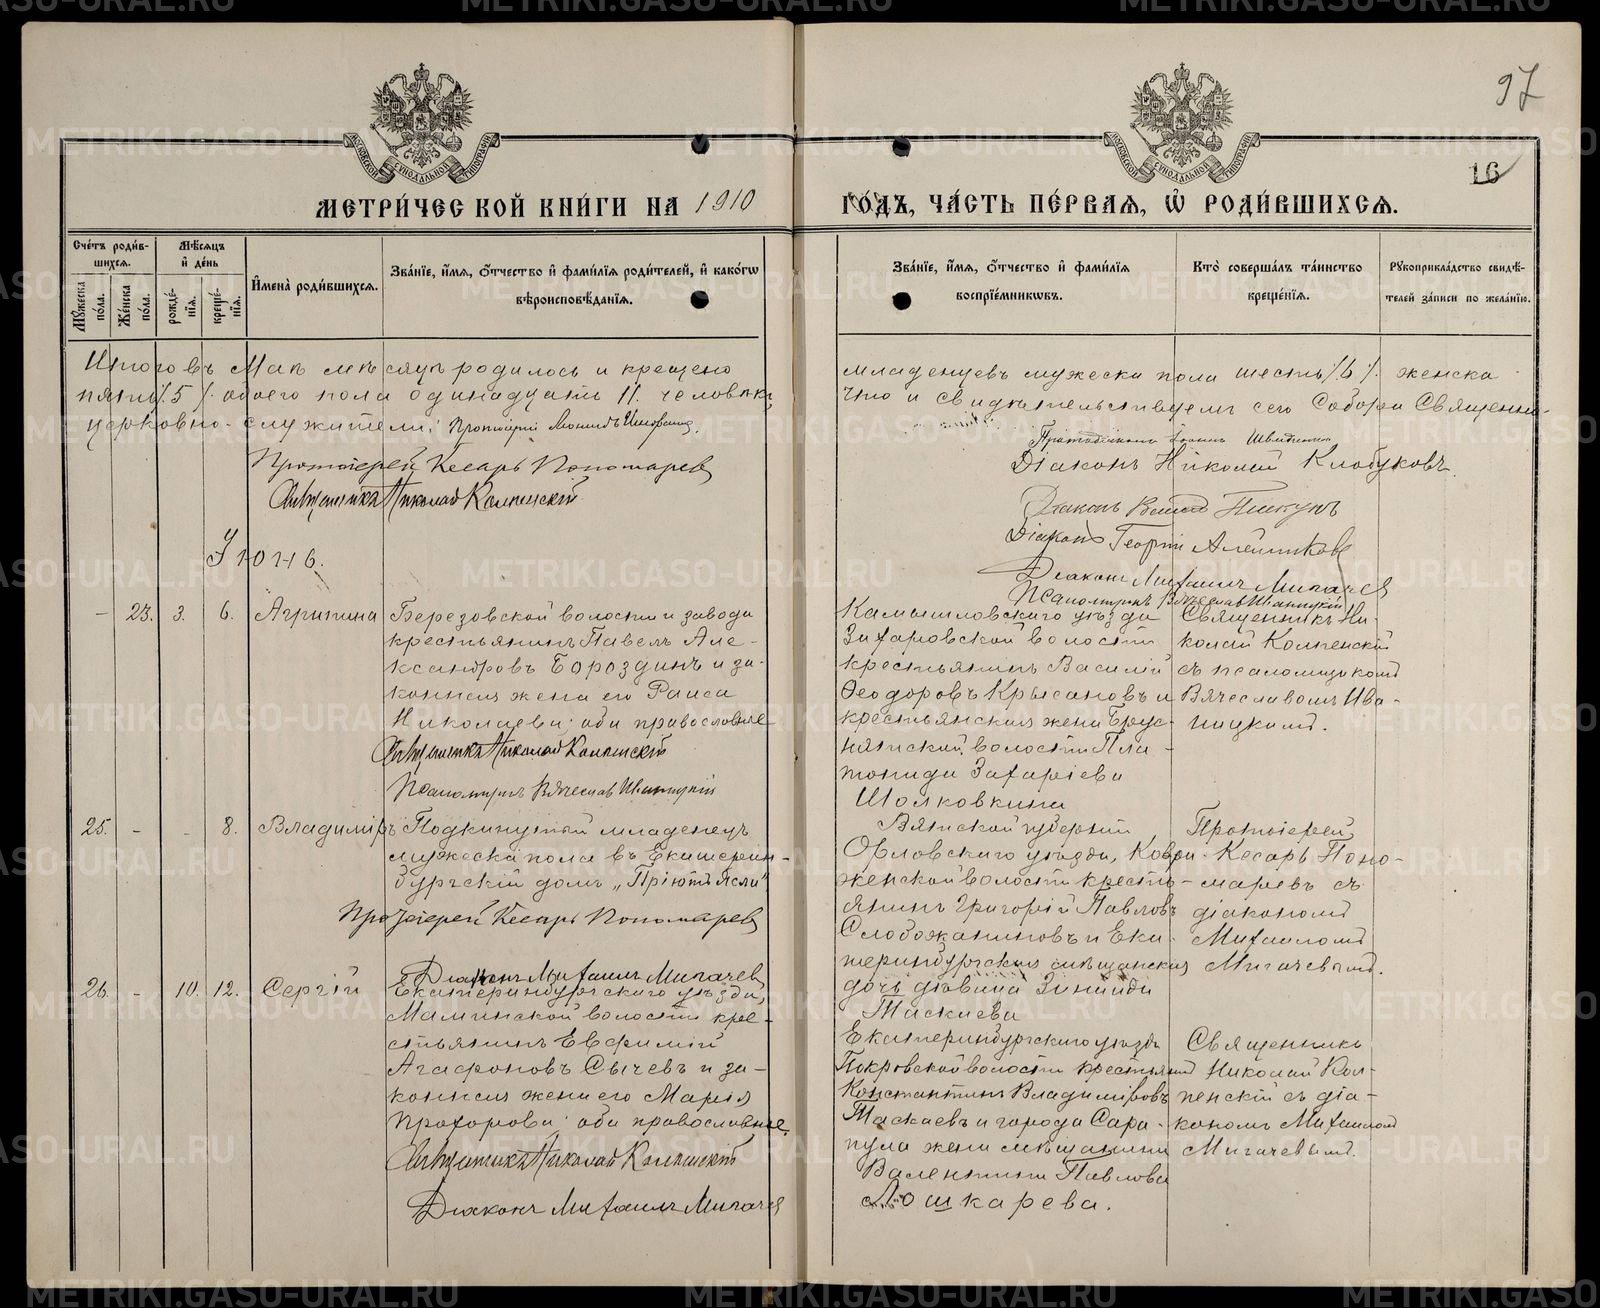 97
16
МОСКОВСКОЙ СѴНОДАЛЬНОЙ ТИПОГРАФІИ
МОСКОВСКОЙ СѴНОДАЛЬНОЙ ТИПОГРАФІИ
МЕТРИ́ЧЕСКОЙ КНИ́ГИ НА 1910
ГО́ДЪ, ЧА́СТЬ ПЕ́РВАѦ, Ѡ҆ РОДИ́ВШИХСѦ.
Сче́тъ роди́в-
шихсѧ.
Мꙋ́жеска по́ла.
Же́нска по́ла.
Мѣ́сѧцъ и҆ де́нь
рожде́-нїѧ.
креще́-нїѧ.
И҆мена̀ роди́вшихсѧ.
Зва́нїе, и҆́мѧ, ѻ҆́тчество и҆ фами́лїѧ роди́телей, и҆ како́гѡ
вѣроисповѣ́данїѧ.
Зва́нїе, и҆́мѧ, ѻ҆́тчество и҆ фами́лїѧ
воспрїе́мникѡвъ.
Кто̀ соверша́лъ та́инство
креще́нїѧ.
Рꙋкоприкла́дство свидѣ́-
телей за́писи по жела́нїю.
Итого въ Маѣ мѣсяцѣ родилось и крещено
младенцевъ мужеска пола шесть /6/. женска
пять /5/. обоего пола одинадцать 11. человѣкъ,
Что и свидѣтельствуемъ сего Собора Священно-
церковно-служители: Протоіерей
Протодіаконъ Іоаннъ
Протоіерей Кесарь Пономаревъ
Діаконъ Николай Клобуковъ.
Священникъ Николай Колпенскій
Діаконъ
Діаконъ Георгій
Діаконъ Михаилъ Мигачевъ
Псаломщикъ Вячеслав Иваницкій
Іюнь.
- 23. 3. 6. Агрипина
Березовской волости и завода
крестьянинъ Павелъ Але-
ксандровъ Бороздинъ и за-
конная жена его Раиса
Николаева оба православные
Священникъ Николай Колпенскій
Псаломщикъ Вячеслав Иваницкій
Камышловскаго уѣзда
Захаровской волости
крестьянинъ Василій
Ѳеодоровъ Крысановъ и
крестьянская жена Брус-
нятской волости Пла-
тонида Захаріева
Шолковкина
Священникъ Ни-
колай Колпенскій
съ псаломщикомъ
Вячеславомъ Ива-
ницкимъ.
25. - - 8. Владиміръ
Подкинутый младенецъ
мужеска пола въ Екатерин-
бургскій домъ „Пріютъ Ясли"
Протоіерей Кесарь Пономаревъ
Діаконъ Михаилъ Мигачевъ
Вятской губерніи
Орловскаго уѣзда, Ковры-
женской волости кресть-
янинъ Григорій Павловъ
Слобожаниновъ и Ека-
теринбургская мѣщанская
дочь дѣвица Зинаида
Таскаева
Протоіерей
Кесарь Поно-
маревъ съ
діакономъ
Михаиломъ
Мигачевымъ.
26. - 10. 12. Сергій
Екатеринбургскаго уѣзда,
Маминской волости кре-
стьянинъ Евфимій
Агафоновъ Сычевъ и за-
конная жена его Марія
Прохорова оба православные.
Священникъ Николай Колпенскій
Діаконъ Михаилъ Мигачев
Екатеринбургскаго уѣзда
Покровской волости крестьянинъ
Константинъ Владиміровъ
Таскаевъ и города Сара-
пула жена мѣщанина
Валентина Павлова
Лошкарева.
Священникъ
Николай Кол-
пенскій съ діа-
кономъ Михаиломъ
Мигачевымъ.
METRIKI.GASO-URAL.RU